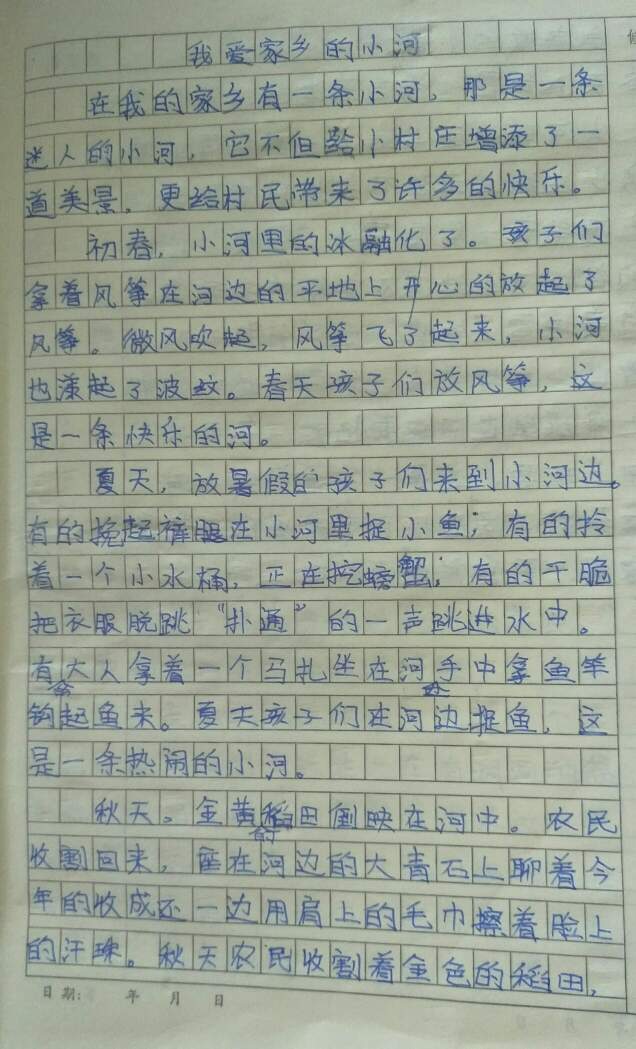 我爱家乡的小河
在我的家乡有一条小河，那是一条
迷人的小河，它不但给小村庄增添了一
道美景。更给村民带来了许多的快乐。
初春，小河里的冰融化了。孩子们
拿着风筝在河边的平地上开心的放起了
风筝。微风吹起，风筝飞了起来，小河
也荡起了波纹。春天孩子们放风筝，这
是一条快乐的河。
夏天，放暑假的孩子们来到小河边。
有的挽起裤腿在小河里捉小鱼；有的拎
着一个小水桶，正在挖螃蟹；有的干脆
把衣服脱跳“扑通”的一声跳进水中。
有大人拿着一个马扎坐在河手中拿鱼竿
钩起鱼来。夏天孩子们在河边捉鱼，这
是一条热闹的小河。
秋天。金黄的稻田倒映在河中。农民
收割回来，座在河边的大青石上聊着今
年的收成还一边用肩上的毛巾擦着脸上
的汗珠。秋天农民收割着金色的稻田，
日期： 年 月 日